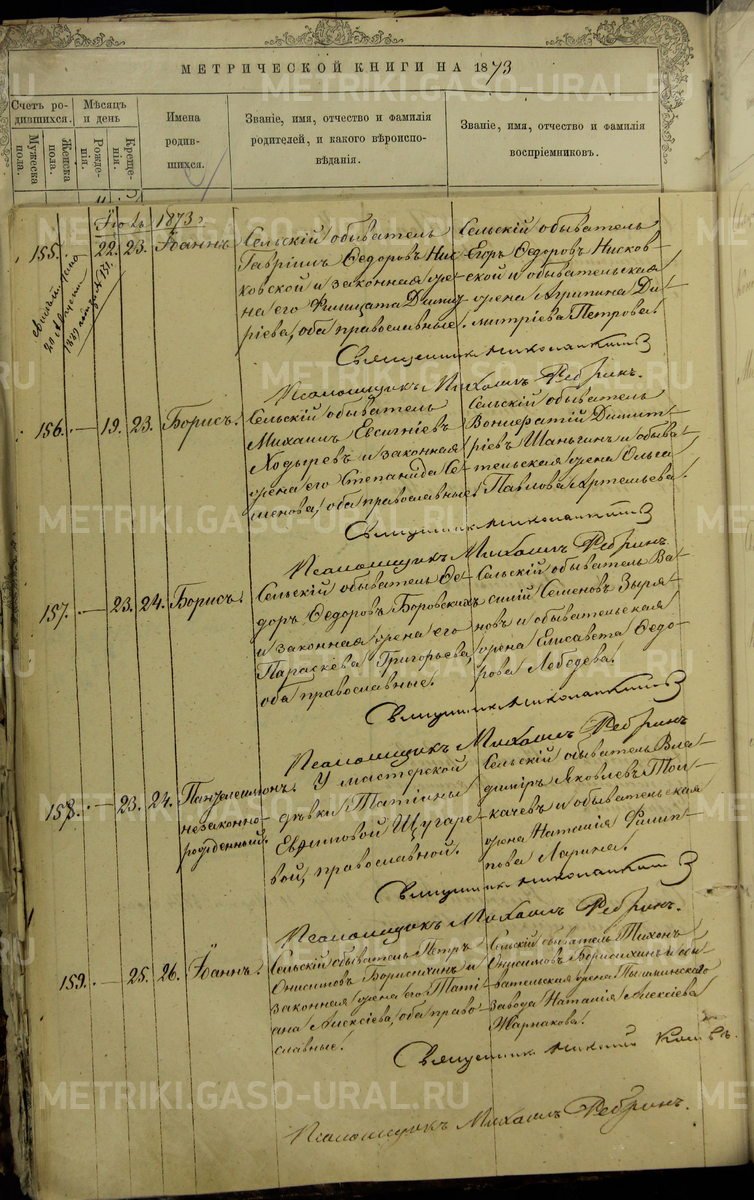 МЕТРИЧЕСКОЙ КНИГИ НА 1873
Счетъ ро-
дившихся.
Мужеска
пола.
Женска
пола.
Мѣсяцъ
и день
Рожде-
нія.
Креще-
нія.
Имена
родив-
шихся.
Званіе, имя, отчество и фамилія
родителей, и какого вѣроиспо-
вѣданія.
Званіе, имя, отчество и фамилія
воспріемниковъ.
Іюль 1873.
155. 22. 23. Іоаннъ
Сельскій обыватель
Гавріилъ Ѳедоровъ Нис
ковской и законная же-
на его Филицата Димит
ріева, оба православные.
Сельскій обыватель
Егоръ Ѳедоровъ Нисков-
ской и обывательская
жена Агрипина Ди-
митріева Петрова.
20 Августа
Священник
Псаломщикъ Михаилъ Ребринъ.
156. — 19. 23. Борисъ.
Сельскій обыватель
Михаилъ Евсигніевъ
Ходыревъ и законная
жена его Степанида Се-
менова, оба православные.
Сельскій обыватель
Вонифатій Димит-
ріевъ Шаньгинъ и обыва-
тельская жена Ольга
Павлова Артемьева.
Священник
Псаломщикъ Михаилъ Ребринъ.
157. — 23. 24. Борисъ.
Сельскій обыватель Ѳе-
доръ Ѳедоровъ Боровскихъ
и законная жена его
Параскева Григорьева,
оба православные.
Сельскій обыватель Ва-
силій Семеновъ Зыря-
новъ и обывательская
жена Елисавета Ѳедо-
рова Лебедева.
Священник
Псаломщикъ Михаилъ Ребринъ
158. — 23. 24. Пантелеимонъ.
незаконно-
рожденный.
У мастерской
дѣвки Татіаны
Евфимовой Щугаре-
вой, православной.
Сельскій обыватель Вла-
димиръ Яковлевъ Тол-
качевъ и обывательская
жена Наталія Филип-
пова Ларина.
Священник
Псаломщикъ Михаилъ Ребринъ.
159. — 25. 26. Іоаннъ.
Сельскій обыватель Петръ
Онисимовъ Борисихинъ и
законная жена его Таті-
ана Алексіева, оба право-
славные.
Сельскій обыватель Тихонъ
Онисимовъ Борисихинъ и обы-
вательская жена Пышминскаго
Завода Наталія Алексіева
Жарнакова.
Священник
Псаломщикъ Михаилъ Ребринъ.
METRIKI.GASO-URAL.RU